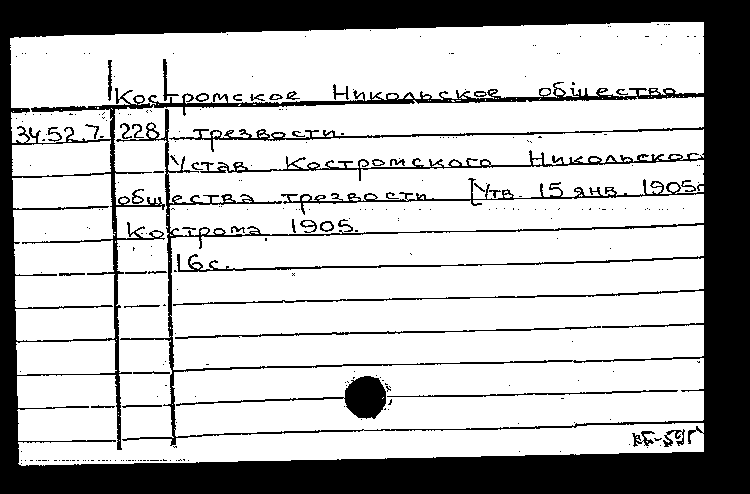 Костромское Никольское общество
34.52.7. 228 трезвости.
Устав Костромского Никольского
общества трезвости. [Утв. 15 янв. 1905г
Кострома, 1905.
16 с.